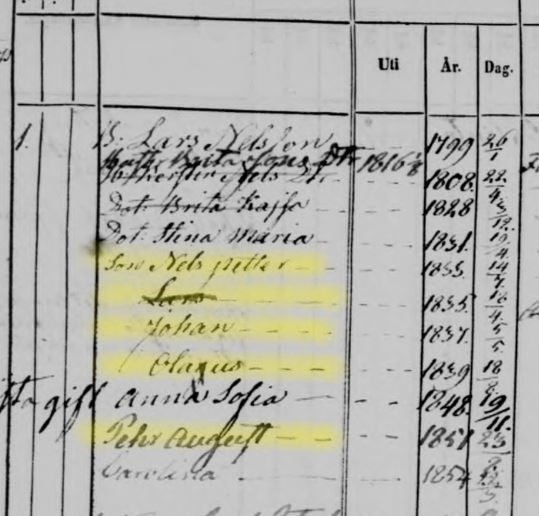 Uti År. Dag.
1. B. Lars Nelsson 1799 26/1
1816
Dtr 1808 22/4
Dot. Brita Kajsa 1828
Dot. Stina Maria 1831 19/4
Son Nels petter 1833 14
Lars 1835 18/4
Johan 1837 5/5
Olaus 1839 18
gift Anna Sofia 1848 19/11
Pehr August 1851 23/9
Carolina 1854